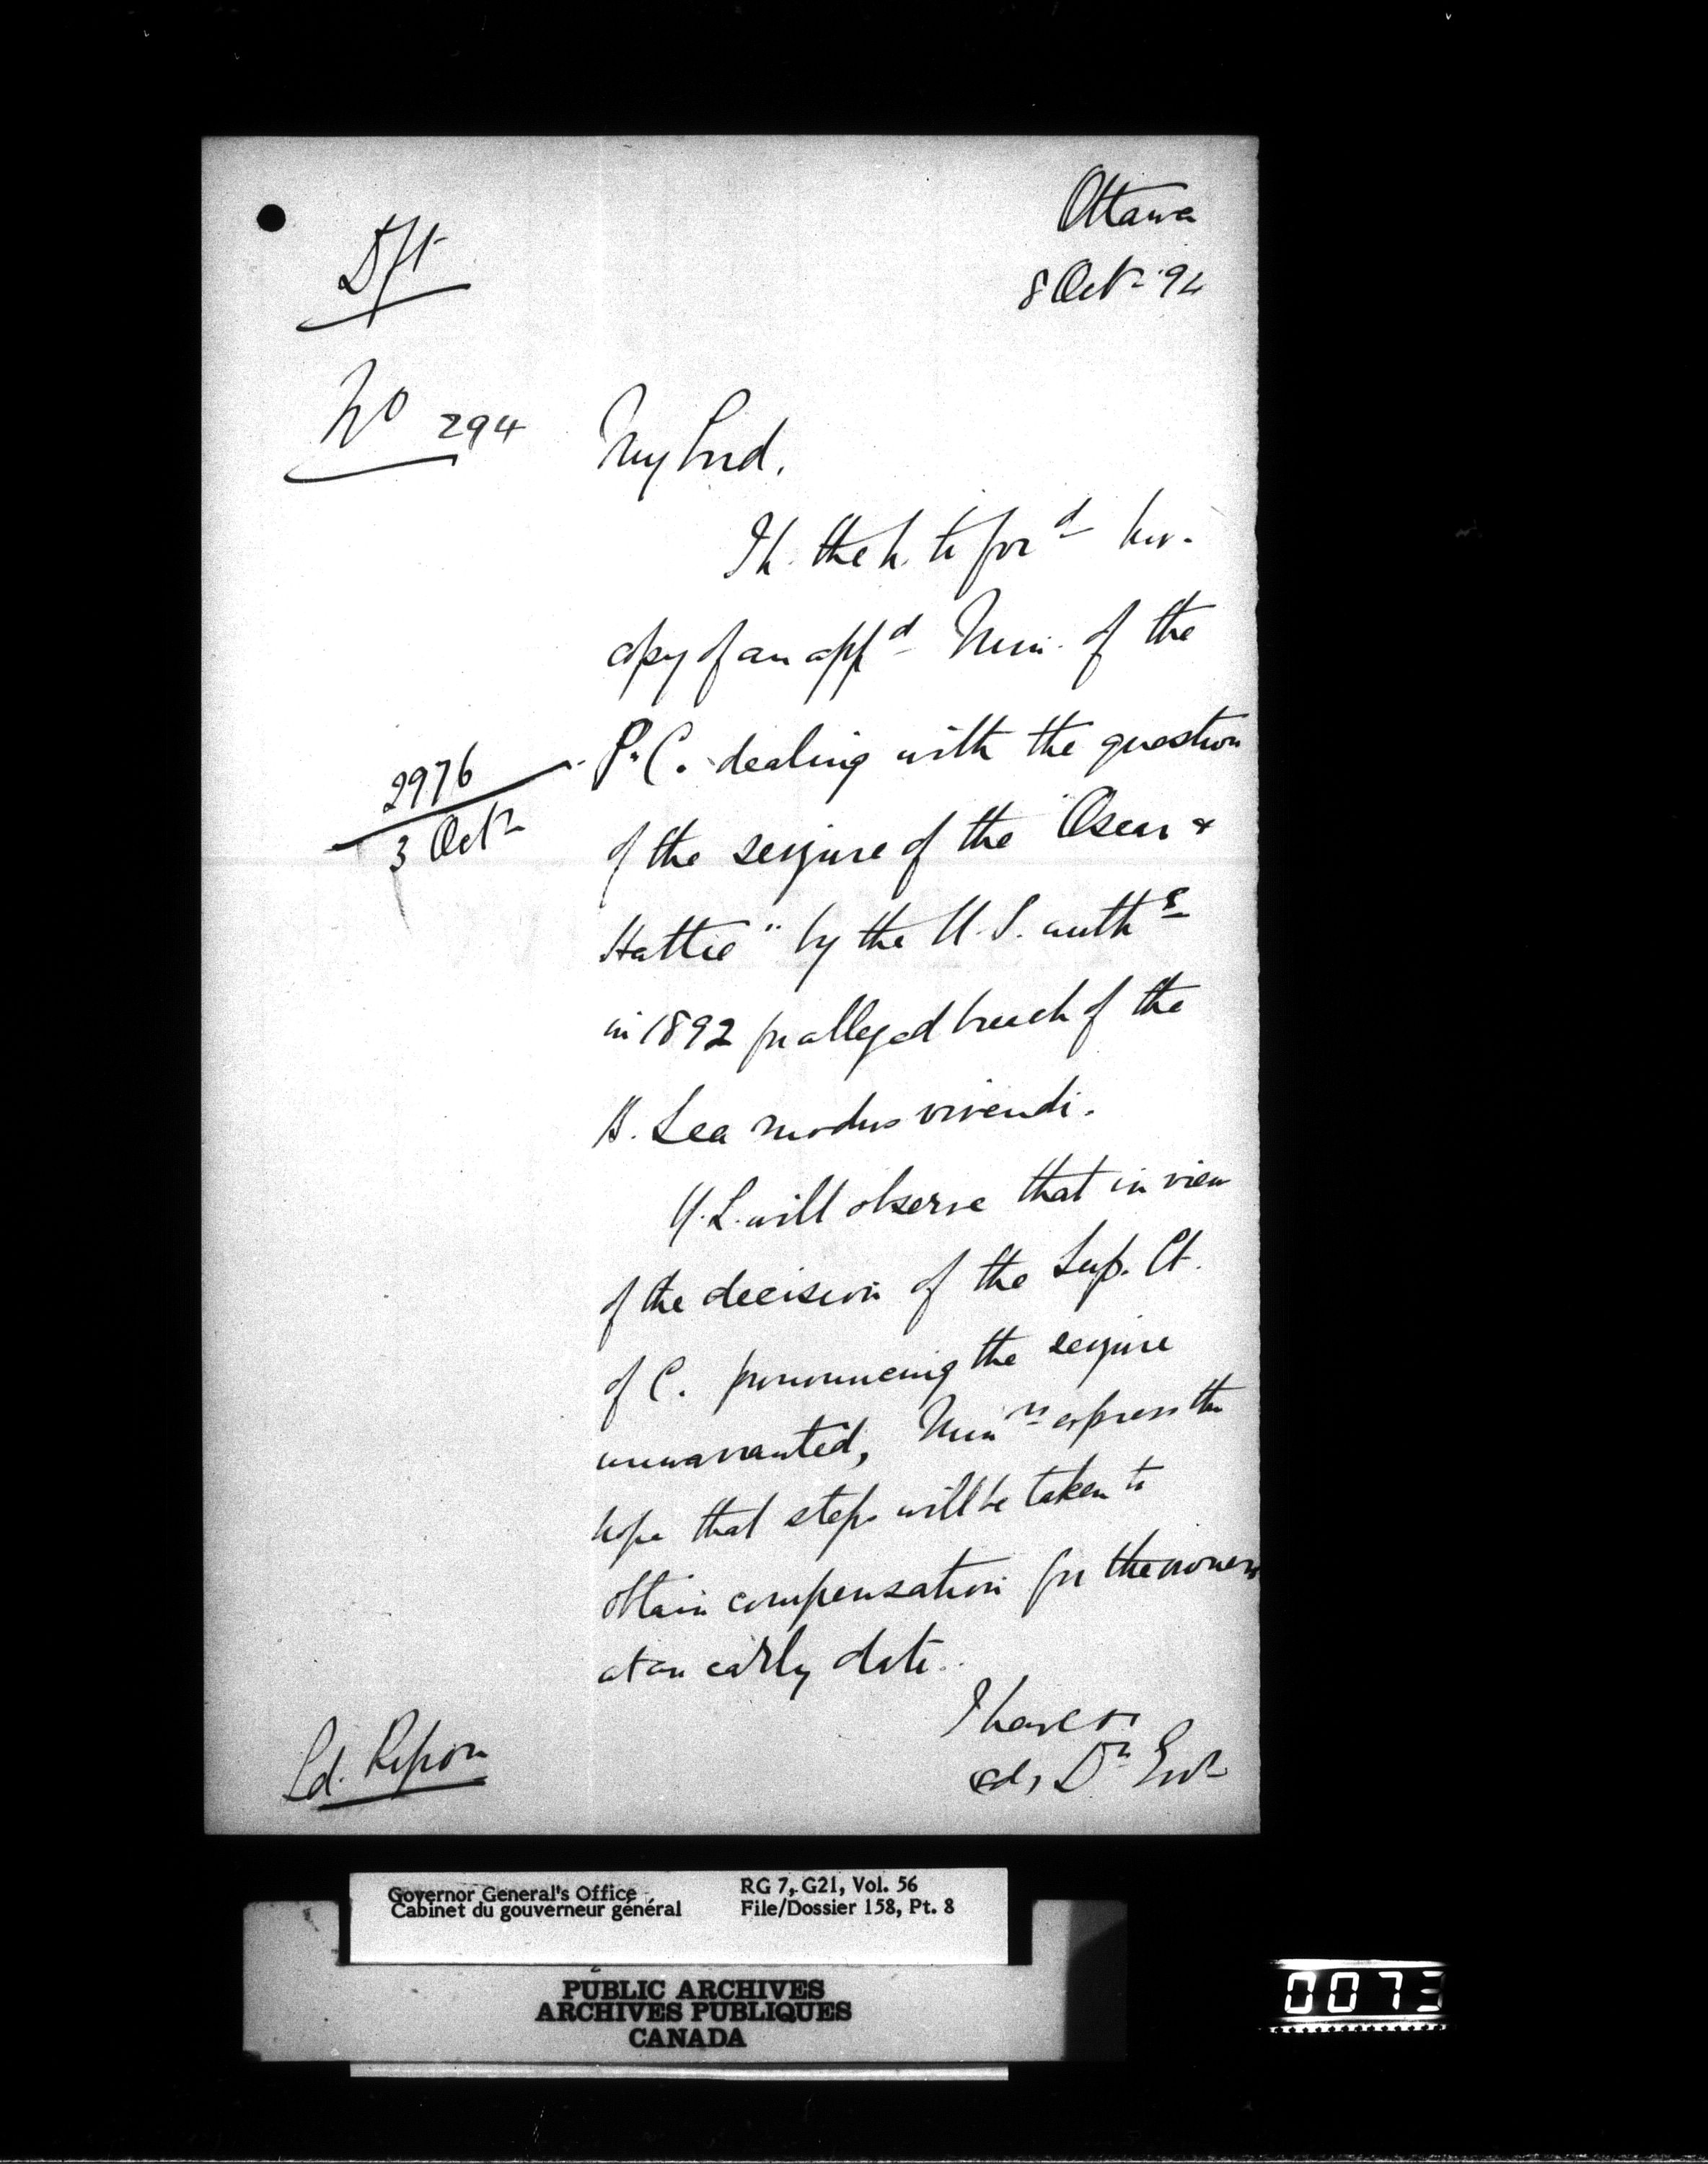 Ottawa
8 Octr '94
Dft
No 294
My Lord,
I h. the h. to ford her.
copy of an appd Min. of the
P.C. dealing with the question
2976
3 Octr
of the seizure of the "Oscar &
Hattie" by the U.S. auths
in 1892 for alleged breach of the
B. Sea modus vivendi.
Y.L. will observe that in view
of the decision of the Sup. Ct.
of C. pronouncing the seizure
unwarranted, Minrs express the
hope that steps will be taken to
obtain compensation for the owners
at an early date.
I have
sd,
Ld. Ripon
Governor General's Office
Cabinet du gouverneur général
RG 7, G21, Vol. 56
File/Dossier 158, Pt. 8
PUBLIC ARCHIVES
ARCHIVES PUBLIQUES
CANADA
0073